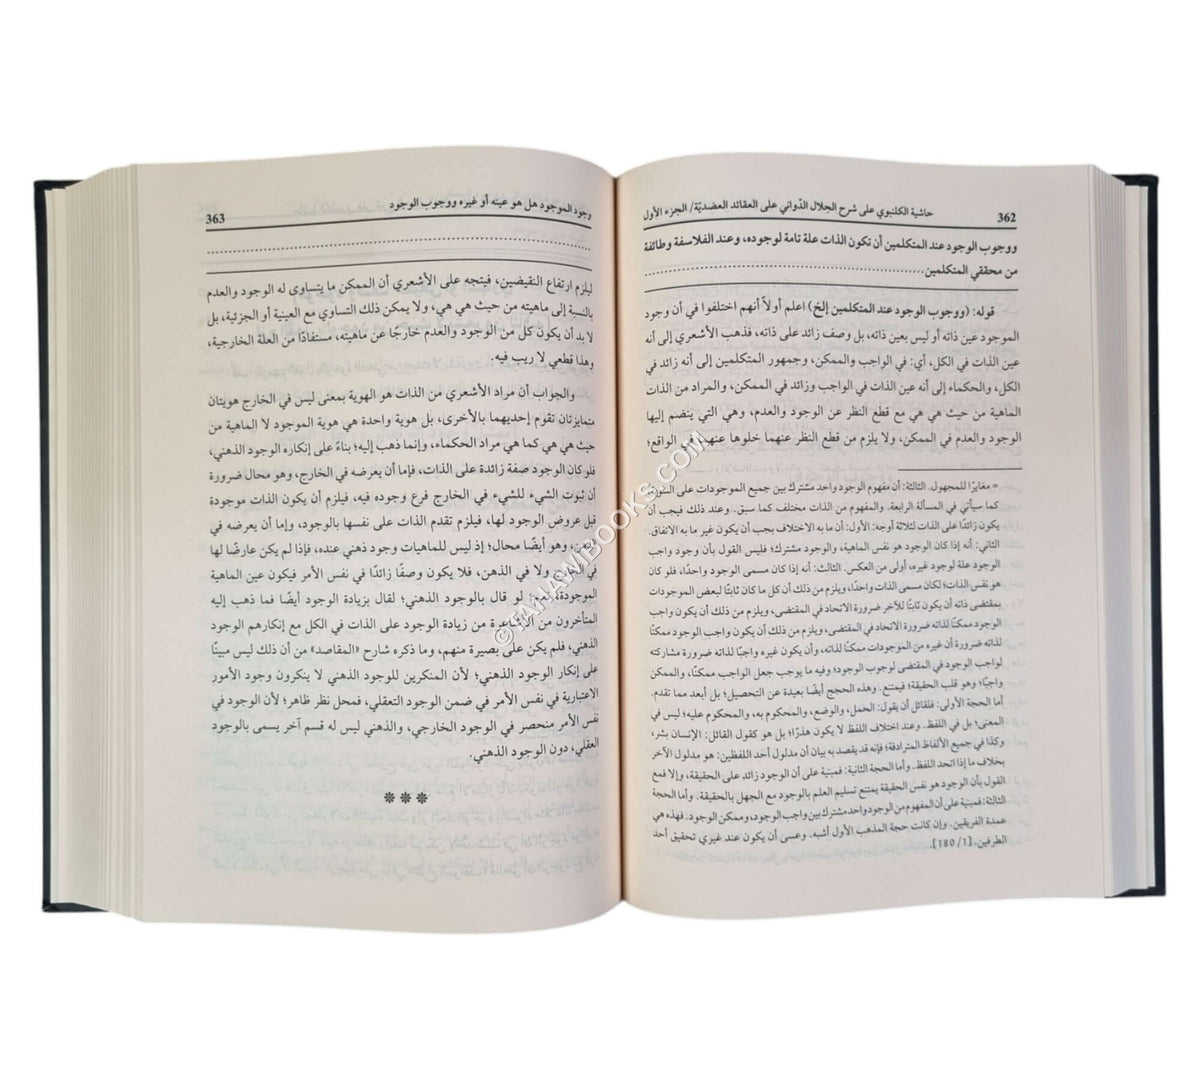 362
حاشية الكلنبوي على شرح الجلال الدّواني على العقائد العضديّة/ الجزء الأول
ووجوب الوجود عند المتكلمين أن تكون الذات علة تامة لوجوده، وعند الفلاسفة وطائفة
من محققي المتكلمين
قوله: (ووجوب الوجود عند المتكلمين إلخ) اعلم أولاً أنهم اختلفوا في أن وجود
الموجود عين ذاته أو ليس بعين ذاته، بل وصف زائد على ذاته، فذهب الأشعري إلى أنه
عين الذات في الكل، أي: في الواجب والممكن، وجمهور المتكلمين إلى أنه زائد في
الكل، والحكماء إلى أنه عين الذات في الواجب وزائد في الممكن، والمراد من الذات
الماهية من حيث هي هي مع قطع النظر عن الوجود والعدم، وهي التي ينضم إليها
الوجود والعدم في الممكن، ولا يلزم من قطع النظر عنهما خلوها عنهما في الواقع؛
= مغايرًا للمجهول. الثالثة: أن مفهوم الوجود واحد مشترك بين جميع الموجودات على السوية
كما سيأتي في المسألة الرابعة. والمفهوم من الذات مختلف كما سبق. وعند ذلك فيجب أن
يكون زائدًا على الذات لثلاثة أوجه: الأول: أن ما به الاختلاف يجب أن يكون غير ما به الاتفاق.
الثاني: أنه إذا كان الوجود هو نفس الماهية، والوجود مشترك؛ فليس القول بأن وجود واجب
الوجود علة لوجود غيره، أولى من العكس. الثالث: أنه إذا كان مسمى الوجود واحدًا، فلو كان
هو نفس الذات؛ لكان مسمى الذات واحدًا، ويلزم من ذلك أن كل ما كان ثابتًا لبعض الموجودات
بمقتضى ذاته أن يكون ثابتًا للآخر ضرورة الاتحاد في المقتضى، ويلزم من ذلك أن يكون واجب
الوجود ممكنًا لذاته ضرورة الاتحاد في المقتضى، ويلزم من ذلك أن يكون واجب الوجود ممكنًا
لذاته ضرورة أن غيره من الموجودات ممكنًا لذاته، وأن يكون غيره واجبًا لذاته ضرورة مشاركته
لواجب الوجود في المقتضى لوجوب الوجود؛ وفيه ما يوجب جعل الواجب ممكنًا، والممكن
واجبًا؛ وهو قلب الحقيقة؛ فيمتنع. وهذه الحجج أيضًا بعيدة عن التحصيل؛ بل أبعد مما تقدم.
أما الحجة الأولى: فلقائل أن يقول: الحمل، والوضع، والمحكوم به، والمحكوم عليه؛ ليس في
المعنى؛ بل في اللفظ. وعند اختلاف اللفظ لا يكون هذرًا؛ بل هو كقول القائل: الإنسان بشر،
وكذا في جميع الألفاظ المترادفة؛ فإنه قد يقصد به بيان أن مدلول أحد اللفظين: هو مدلول الآخر
بخلاف ما إذا اتحد اللفظ. وأما الحجة الثانية: فمبنية على أن الوجود زائد على الحقيقة، وإلا فمع
القول بأن الوجود هو نفس الحقيقة يمتنع تسليم العلم بالوجود مع الجهل بالحقيقة. وأما الحجة
الثالثة: فمبنية على أن المفهوم من الوجود واحد مشترك بين واجب الوجود، وممكن الوجود. فهذه هي
عمدة الفريقين. وإن كانت حجة المذهب الأول أشبه. وعسى أن يكون عند غيري تحقيق أحد
الطرفين. [1/ 180].
وجود الموجود هل هو عينه أو غيره ووجوب الوجود
363
ليلزم ارتفاع النقيضين، فيتجه على الأشعري أن الممكن ما يتساوى له الوجود والعدم
بالنسبة إلى ماهيته من حيث هي هي، ولا يمكن ذلك التساوي مع العينية أو الجزئية، بل
لا بد أن يكون كل من الوجود والعدم خارجًا عن ماهيته، مستفادًا من العلة الخارجية،
وهذا قطعي لا ريب فيه.
والجواب أن مراد الأشعري من الذات هو الهوية بمعنى ليس في الخارج هويتان
متمايزتان تقوم إحديهما بالأخرى، بل هوية واحدة هي هوية الموجود لا الماهية من
حيث هي هي كما هي مراد الحكماء، وإنما ذهب إليه؛ بناءً على إنكاره الوجود الذهني،
فلو كان الوجود صفة زائدة على الذات، فإما أن يعرضه في الخارج، وهو محال ضرورة
أن ثبوت الشيء للشيء في الخارج فرع وجوده فيه، فيلزم أن يكون الذات موجودة
قبل عروض الوجود لها، فيلزم تقدم الذات على نفسها بالوجود، وإما أن يعرضه في
الذهن، وهو أيضًا محال؛ إذ ليس للماهيات وجود ذهني عنده، فإذا لم يكن عارضًا لها
في الخارج ولا في الذهن، فلا يكون وصفًا زائدًا في نفس الأمر فيكون عين الماهية
الموجودة، نعم؛ لو قال بالوجود الذهني؛ لقال بزيادة الوجود أيضًا فما ذهب إليه
المتأخرون من الأشاعرة من زيادة الوجود على الذات في الكل مع إنكارهم الوجود
الذهني؛ فلم يكن على بصيرة منهم، وما ذكره شارح «المقاصد» من أن ذلك ليس مبينًا
على إنكار الوجود الذهني؛ لأن المنكرين للوجود الذهني لا ينكرون وجود الأمور
الاعتبارية في نفس الأمر في ضمن الوجود التعقلي، فمحل نظر ظاهر؛ لأن الوجود في
نفس الأمر منحصر في الوجود الخارجي، والذهني ليس له قسم آخر يسمى بالوجود
العقلي، دون الوجود الذهني.
***
© TAHAWIBOOKS.COM